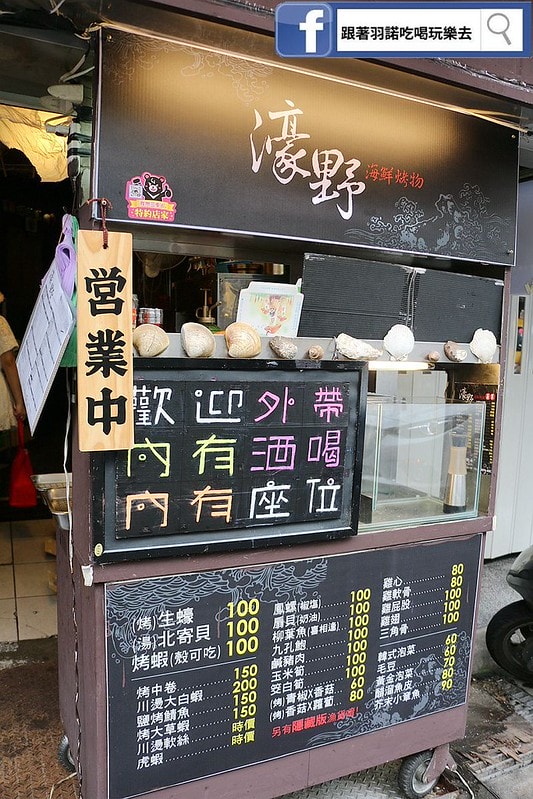 跟著羽諾吃喝玩樂去
濠野
海鮮烤物
特約店家
營業中
歡迎外帶
內有酒喝
內有座位
(烤)生蠔 100
(湯)北寄貝 100
烤蝦(殼可吃) 100
烤中卷 150
川燙大白蝦 200
鹽烤鯖魚 150
烤大草蝦 150
川燙軟絲 時價
虎蝦 時價
鳳螺(椒鹽) 100
扇貝(奶油) 100
柳葉魚(喜相逢) 100
九孔鮑 100
鹹豬肉 100
玉米筍 100
筊白筍 100
(烤)青椒X香菇 80
(烤)香菇X蘿蔔 80
另有隱藏版漁貨喔!
雞心 80
雞軟骨 80
雞屁股 100
雞翅 100
三角骨 100
韓式泡菜 60
毛豆 60
黃金泡菜 70
醋溜魚皮 80
芥末小章魚 90